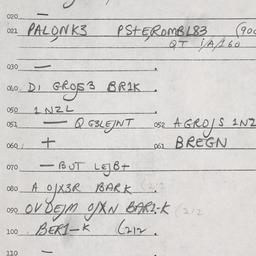 020 —
021 PALONK3 PSTEROMBL83 (900
QT 1/A/260
030 — .
040 DI GROS3 BR1K
050 1 NZL
051 — Q G3LEJNT 052 AGROJS 1NZ
060 + 061 BREGN
070 — BUT LEJB+
080 A OJX3R BARK (212
090 OVDEJM OJXN BAR1-K (212
100 BER1-K (212 .
110 —